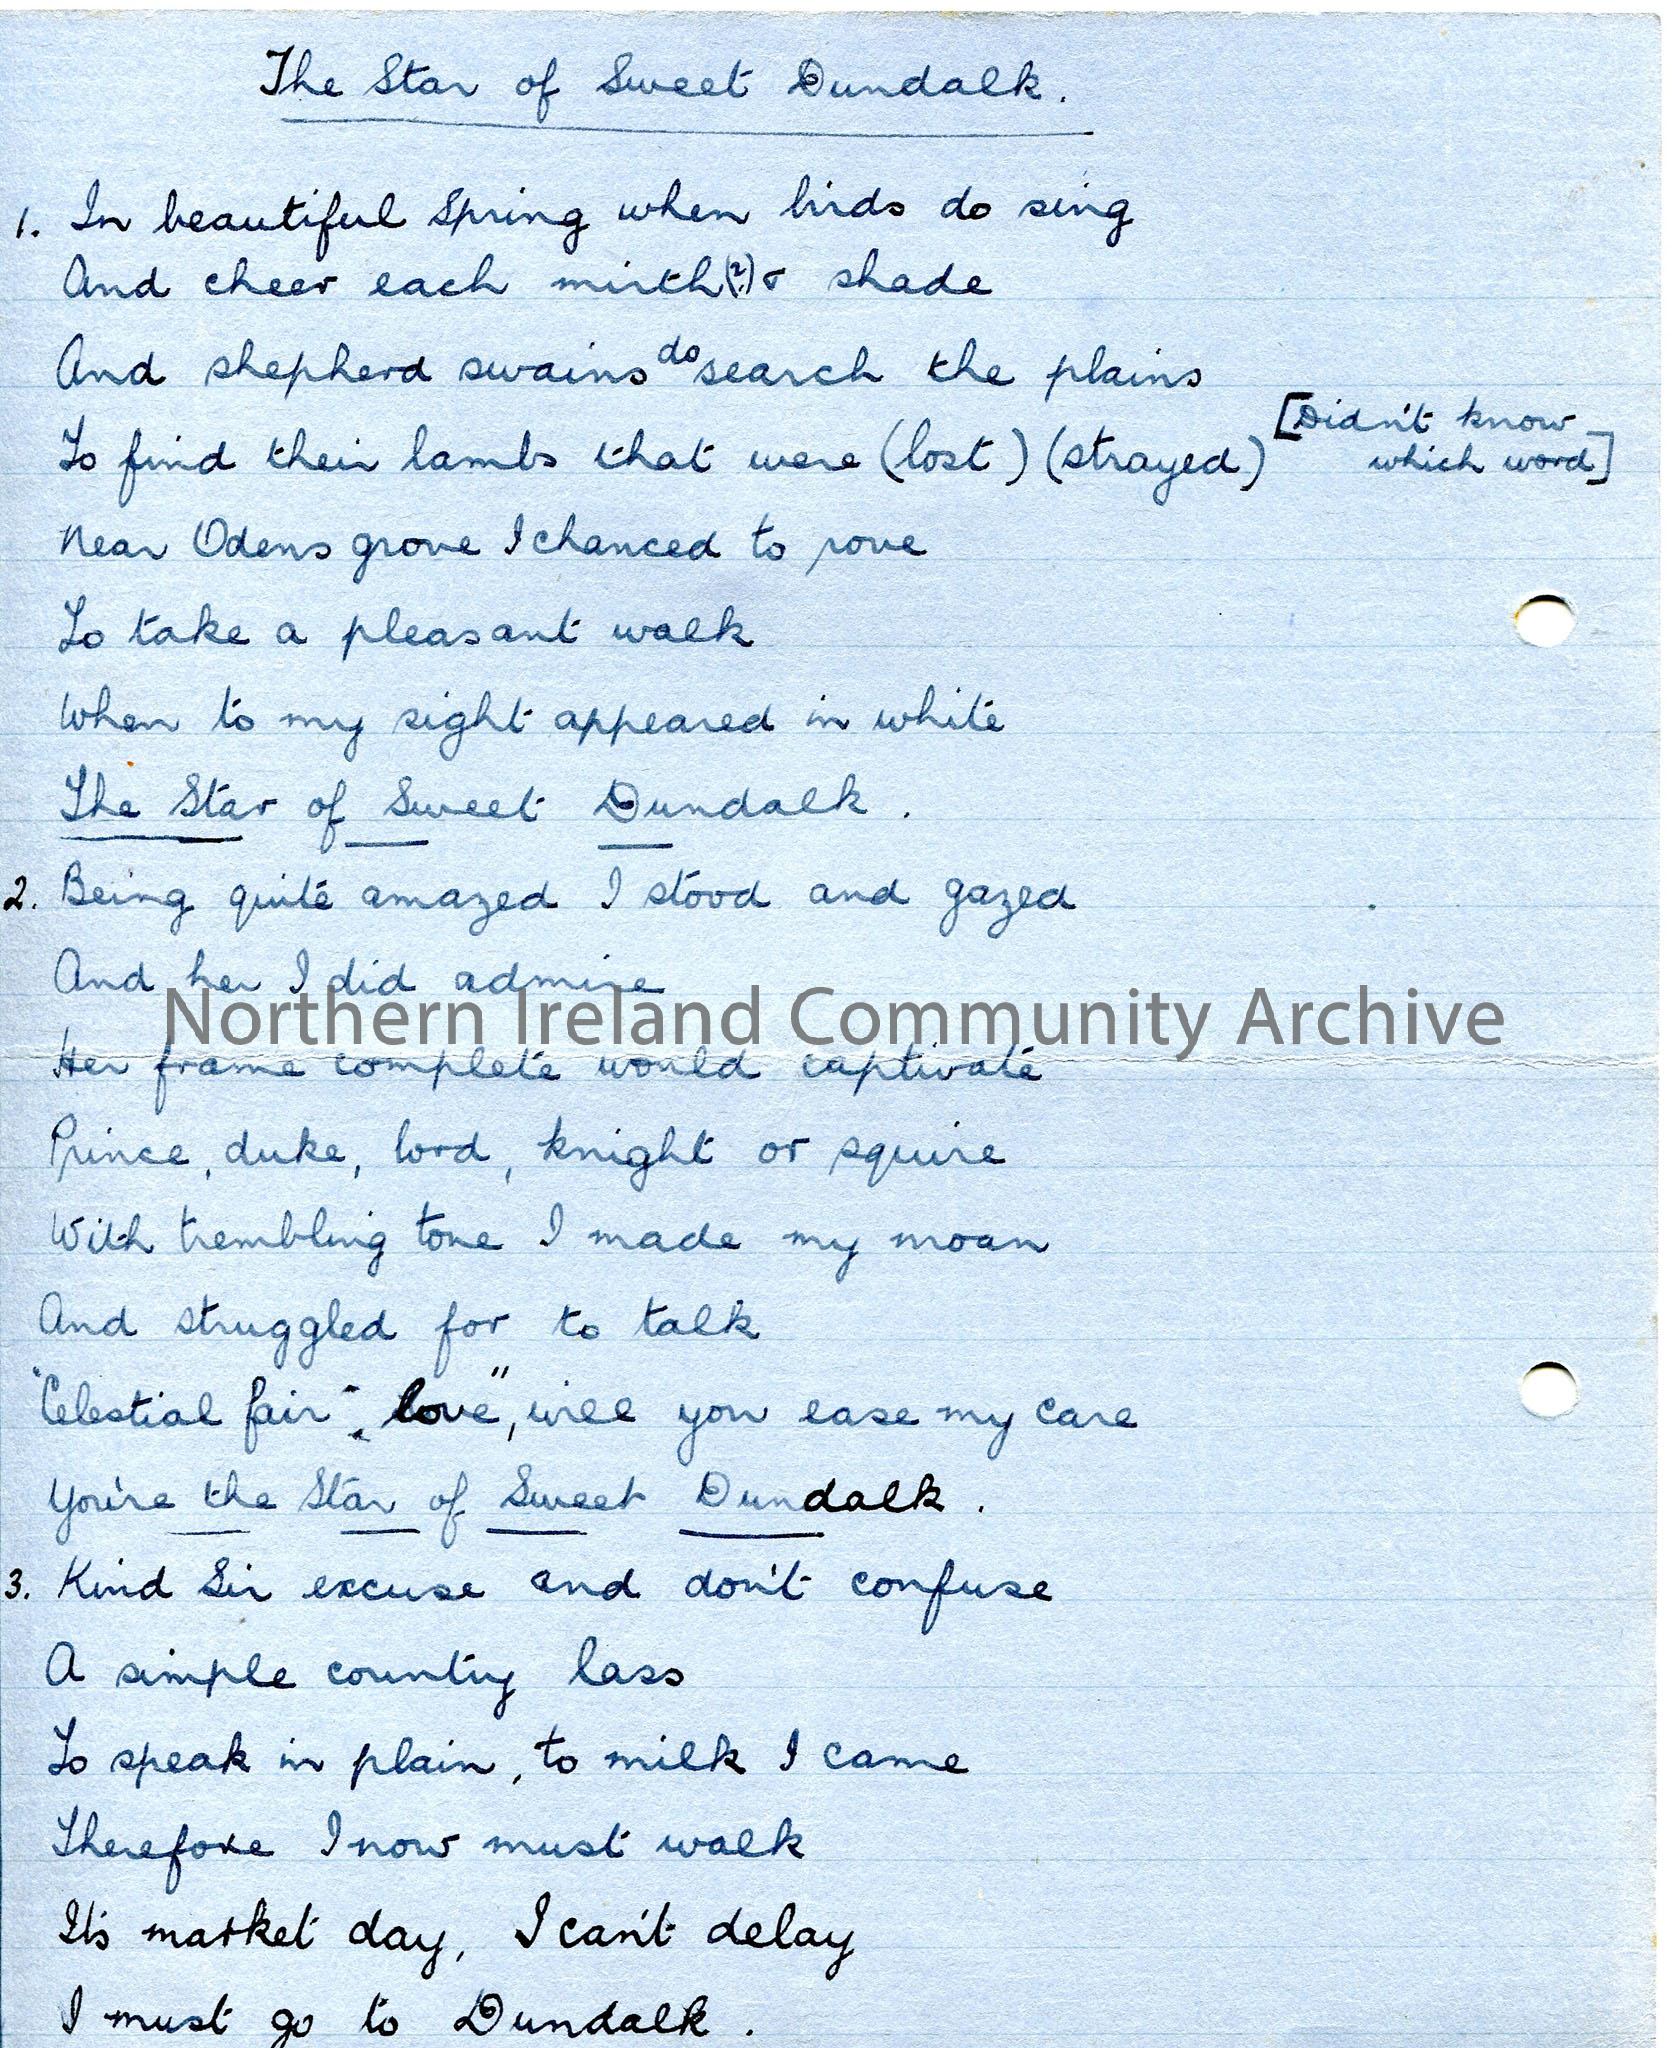 The Star of Sweet Dundalk.
1. In beautiful Spring when birds do sing
And cheer each mirth(?) & shade
And shepherd swains do search the plains
To find their lambs that were (lost) (strayed) [Didn't know which word]
Near Odens grove I chanced to rove
To take a pleasant walk
When to my sight appeared in white
The Star of Sweet Dundalk.
2. Being quite amazed I stood and gazed
And her I did admire
Northern Ireland Community Archive
Her frame complete would captivate
Prince, duke, lord, knight or squire
With trembling tone I made my moan
And struggled for to talk
"Celestial fair", love", will you ease my care
You're the Star of Sweet Dundalk.
3. Kind Sir excuse and don't confuse
A simple country lass
To speak in plain, to milk I came
Therefore I now must walk
It's market day, I can't delay
I must go to Dundalk.